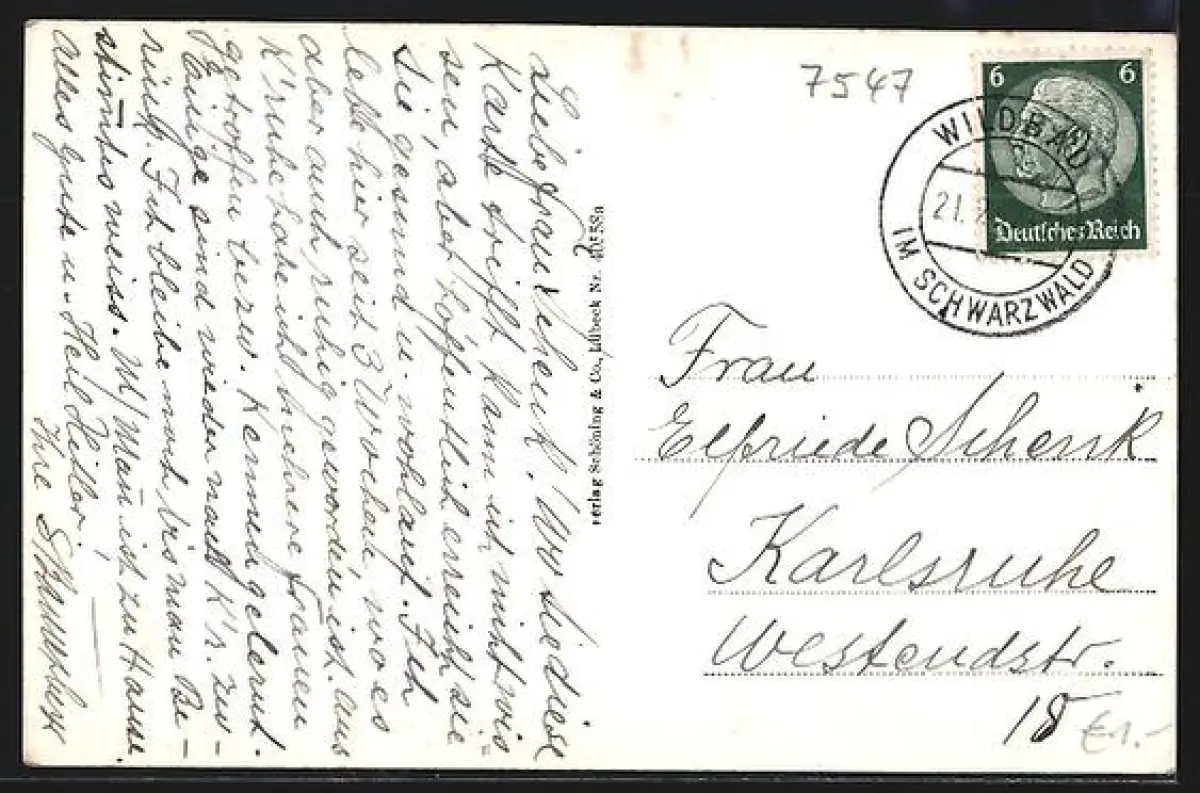 Liebe Frau Schenk! Wo Sie diese
Karte trifft kann ich nicht wis=
sen, aber hoffentlich erreicht sie
Sie gesund u. wohlauf. Ich
lebe hier seit 3 Wochen, wo es
aber auch ruhig geworden ist. aus
K'ruhe habe ich mehrere Frauen
getroffen bezw. kennen gelernt.
Einige sind wieder nach K'r. zu-
rück. Ich bleibe noch bis man Be-
stimtes weiss. M/Mann ist zu Hause.
alles gute u. Heil Hitler!
Ihre
Verlag Schöning & Co., Lübeck Nr.
7547
6 6
Deutsches Reich
WILDBAD
21.
IM SCHWARZWALD
Frau
Elfriede Schenk
Karlsruhe
Westendstr.
18
€1.-